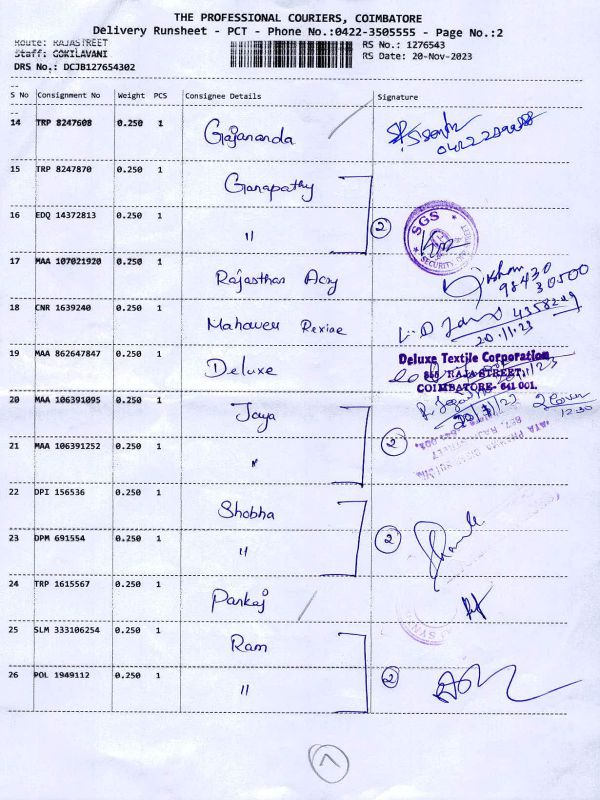 THE PROFESSIONAL COURIERS, COIMBATORE
Delivery Runsheet - PCT - Phone No.:0422-3505555 - Page No.:2
Route: RAJASTREET
Staff: GOKILAVANI
DRS No.: DCJB127654302
RS No.: 1276543
RS Date: 20-Nov-2023
S No Consignment No Weight PCS Consignee Details Signature
14 TRP 8247608 0.250 1 Gajananda
15 TRP 8247870 0.250 1 Ganapathy
16 EDQ 14372813 0.250 1 "
2
SGS
SECURITY
17 MAA 107021920 0.250 1 Rajasthan
98430
30500
18 CNR 1639240 0.250 1 Mahaveer Rexine
20.11.23
19 MAA 862647847 0.250 1 Deluxe
Deluxe Textile Corporation
RAJA STREET,
COIMBATORE- 641 001.
20 MAA 106391095 0.250 1 Jaya
12.30
21 MAA 106391252 0.250 1 "
2
22 DPI 156536 0.250 1 Shobha
23 DPM 691554 0.250 1 "
2
24 TRP 1615567 0.250 1 Pankaj
25 SLM 333106254 0.250 1 Ram
26 POL 1949112 0.250 1 "
2